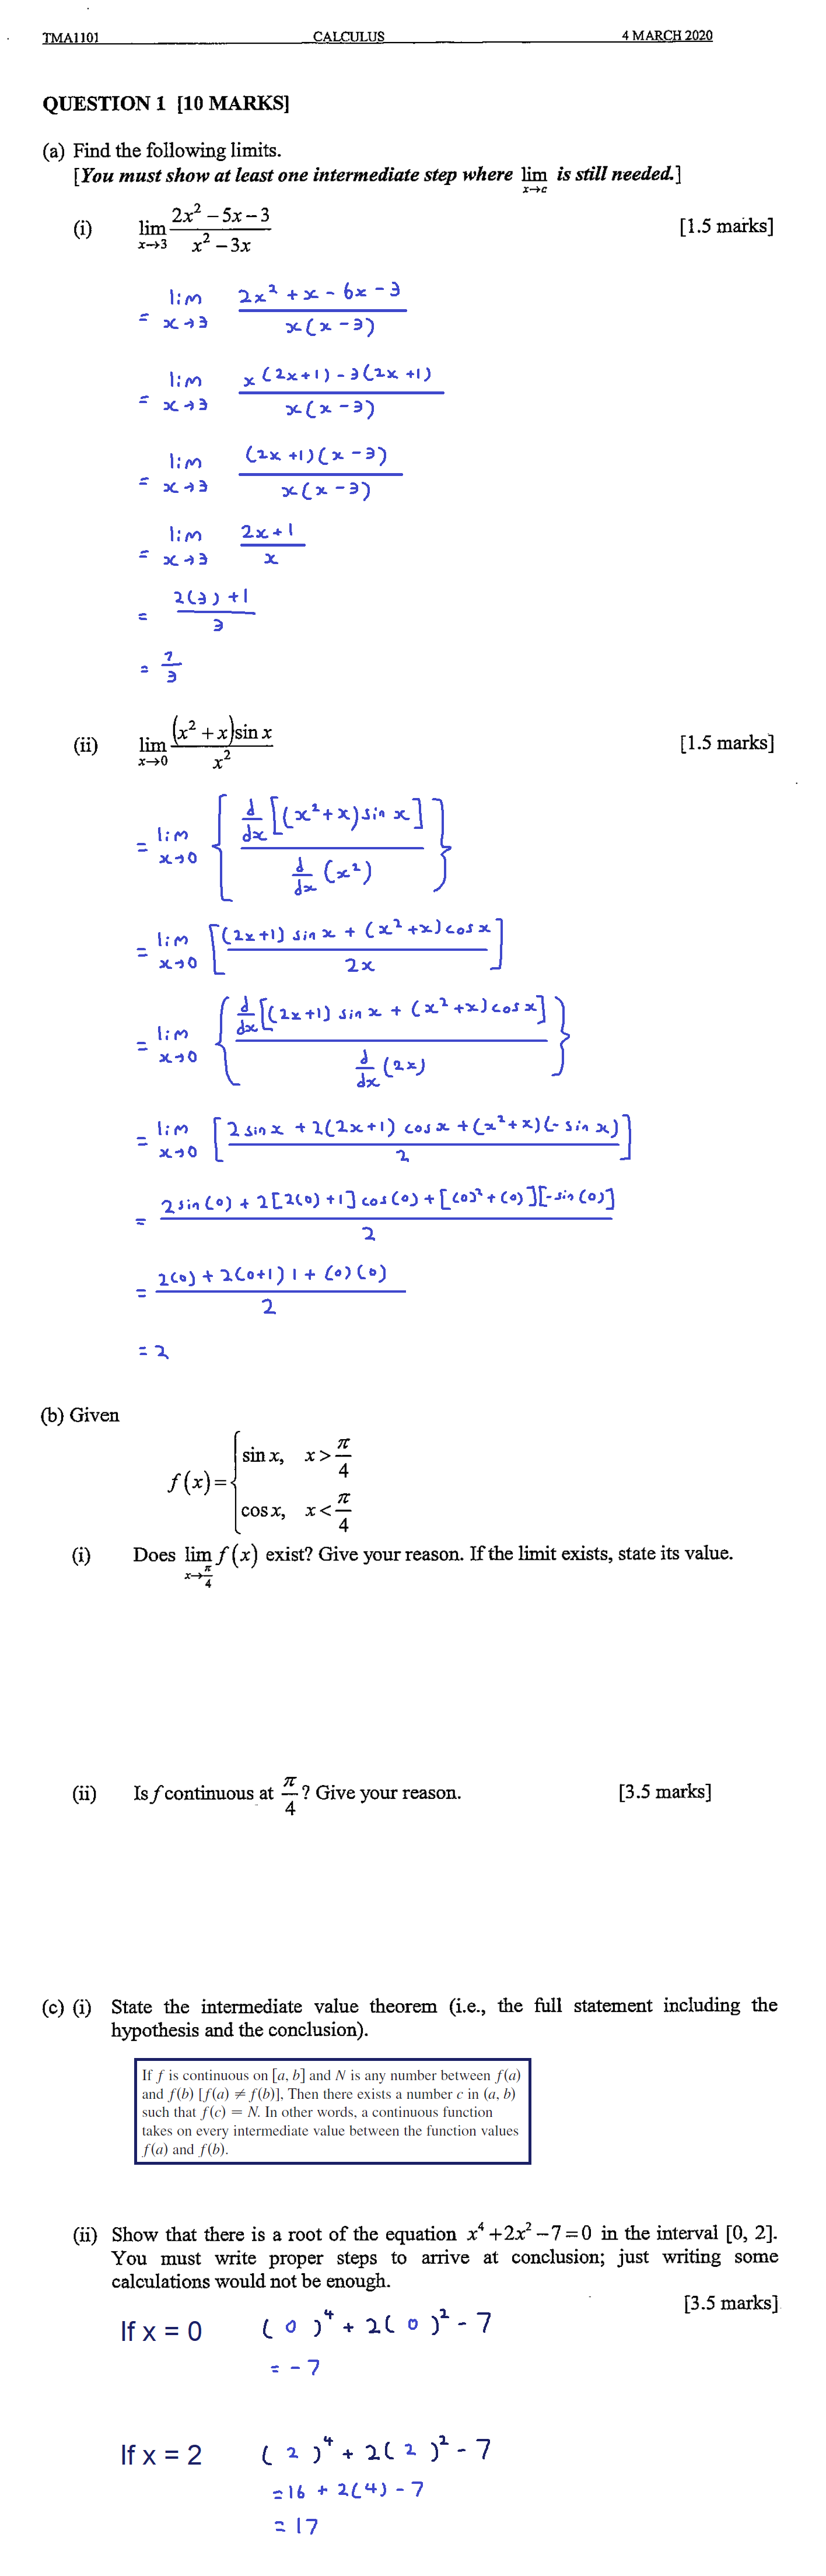 TMA1101 CALCULUS 4 MARCH 2020
QUESTION 1 [10 MARKS]
(a) Find the following limits.
[You must show at least one intermediate step where lim x→c is still needed.]
(i) lim x→3 (2x² – 5x – 3)/(x² – 3x) [1.5 marks]
= lim x→3 (2x² + x - 6x - 3)/(x(x - 3))
= lim x→3 (x(2x+1) - 3(2x+1))/(x(x - 3))
= lim x→3 ((2x+1)(x - 3))/(x(x - 3))
= lim x→3 (2x+1)/x
= (2(3)+1)/3
= 7/3
(ii) lim x→0 ((x² + x)sin x)/x² [1.5 marks]
= lim x→0 { d/dx [(x²+x) sin x] / d/dx (x²) }
= lim x→0 [ ((2x+1) sin x + (x²+x) cos x) / 2x ]
= lim x→0 { d/dx [(2x+1) sin x + (x²+x) cos x] / d/dx (2x) }
= lim x→0 [ (2 sin x + 2(2x+1) cos x + (x²+x)(- sin x)) / 2 ]
= (2 sin(0) + 2[2(0)+1] cos(0) + [(0)²+(0)][-sin(0)]) / 2
= (2(0) + 2(0+1) 1 + (0)(0)) / 2
= 2
(b) Given
f(x) = { sin x, x > π/4
cos x, x < π/4
(i) Does lim x→π/4 f(x) exist? Give your reason. If the limit exists, state its value.
(ii) Is f continuous at π/4? Give your reason. [3.5 marks]
(c) (i) State the intermediate value theorem (i.e., the full statement including the
hypothesis and the conclusion).
If f is continuous on [a, b] and N is any number between f(a)
and f(b) [f(a) ≠ f(b)], Then there exists a number c in (a, b)
such that f(c) = N. In other words, a continuous function
takes on every intermediate value between the function values
f(a) and f(b).
(ii) Show that there is a root of the equation x⁴ + 2x² – 7 = 0 in the interval [0, 2].
You must write proper steps to arrive at conclusion; just writing some
calculations would not be enough.
[3.5 marks]
If x = 0 (0)⁴ + 2(0)² - 7
= - 7
If x = 2 (2)⁴ + 2(2)² - 7
= 16 + 2(4) - 7
= 17